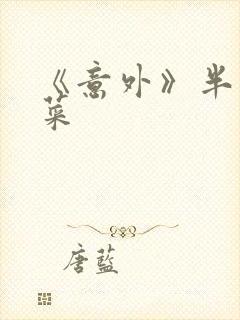 《意外》半
菜
唐藍